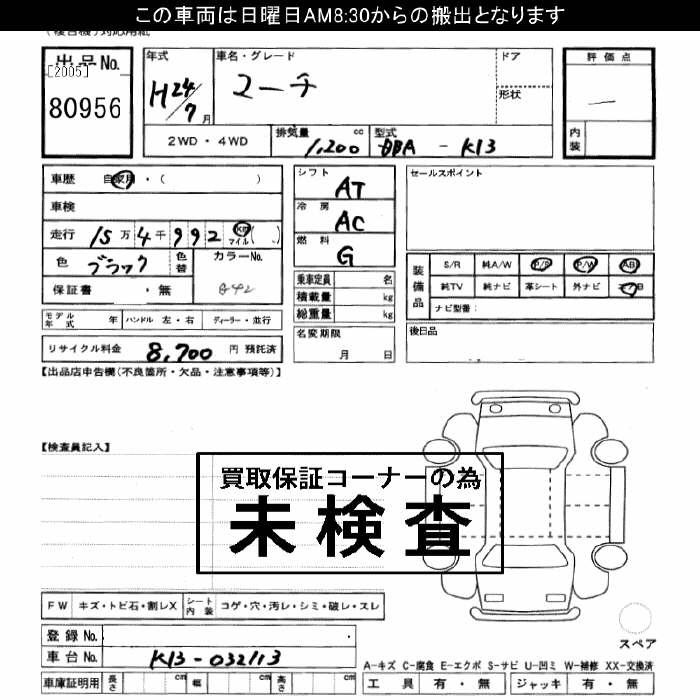 この車両は日曜日AM8:30からの搬出となります
出品No.
[2005]
80956
年式 H24/7月
車名・グレード マーチ
ドア
形状
評価点
—
内装
2WD・4WD
排気量 1,200 cc
型式 DBA - K13
車歴 自家用・( )
車検
走行 15万4千992 km マイル( )
色 ブラック 色替 カラーNo. G42
保証書 ・無
シフト AT
冷房 AC
燃料 G
乗車定員 名
積載量 kg
総重量 kg
名変期限
月 日
セールスポイント
装備品
S/R 純A/W P/S P/W AB
純TV 純ナビ 革シート 外ナビ
ナビ型番:
後日品
モデル年式 年 ハンドル 左・右 ディーラー・並行
リサイクル料金 8,700 円 預託済
【出品店申告欄(不良箇所・欠品・注意事項等)】
【検査員記入】
買取保証コーナーの為
未検査
FW キズ・トビ石・割レX シート内装 コゲ・穴・汚レ・シミ・破レ・スレ
登録No.
車台No. K13-032113
スペア
A-キズ C-腐食 E-エクボ S-サビ U-凹ミ W-補修 XX-交換済
車庫証明用 長さ cm 幅 cm 高さ cm
工具 有・無 ジャッキ 有・無